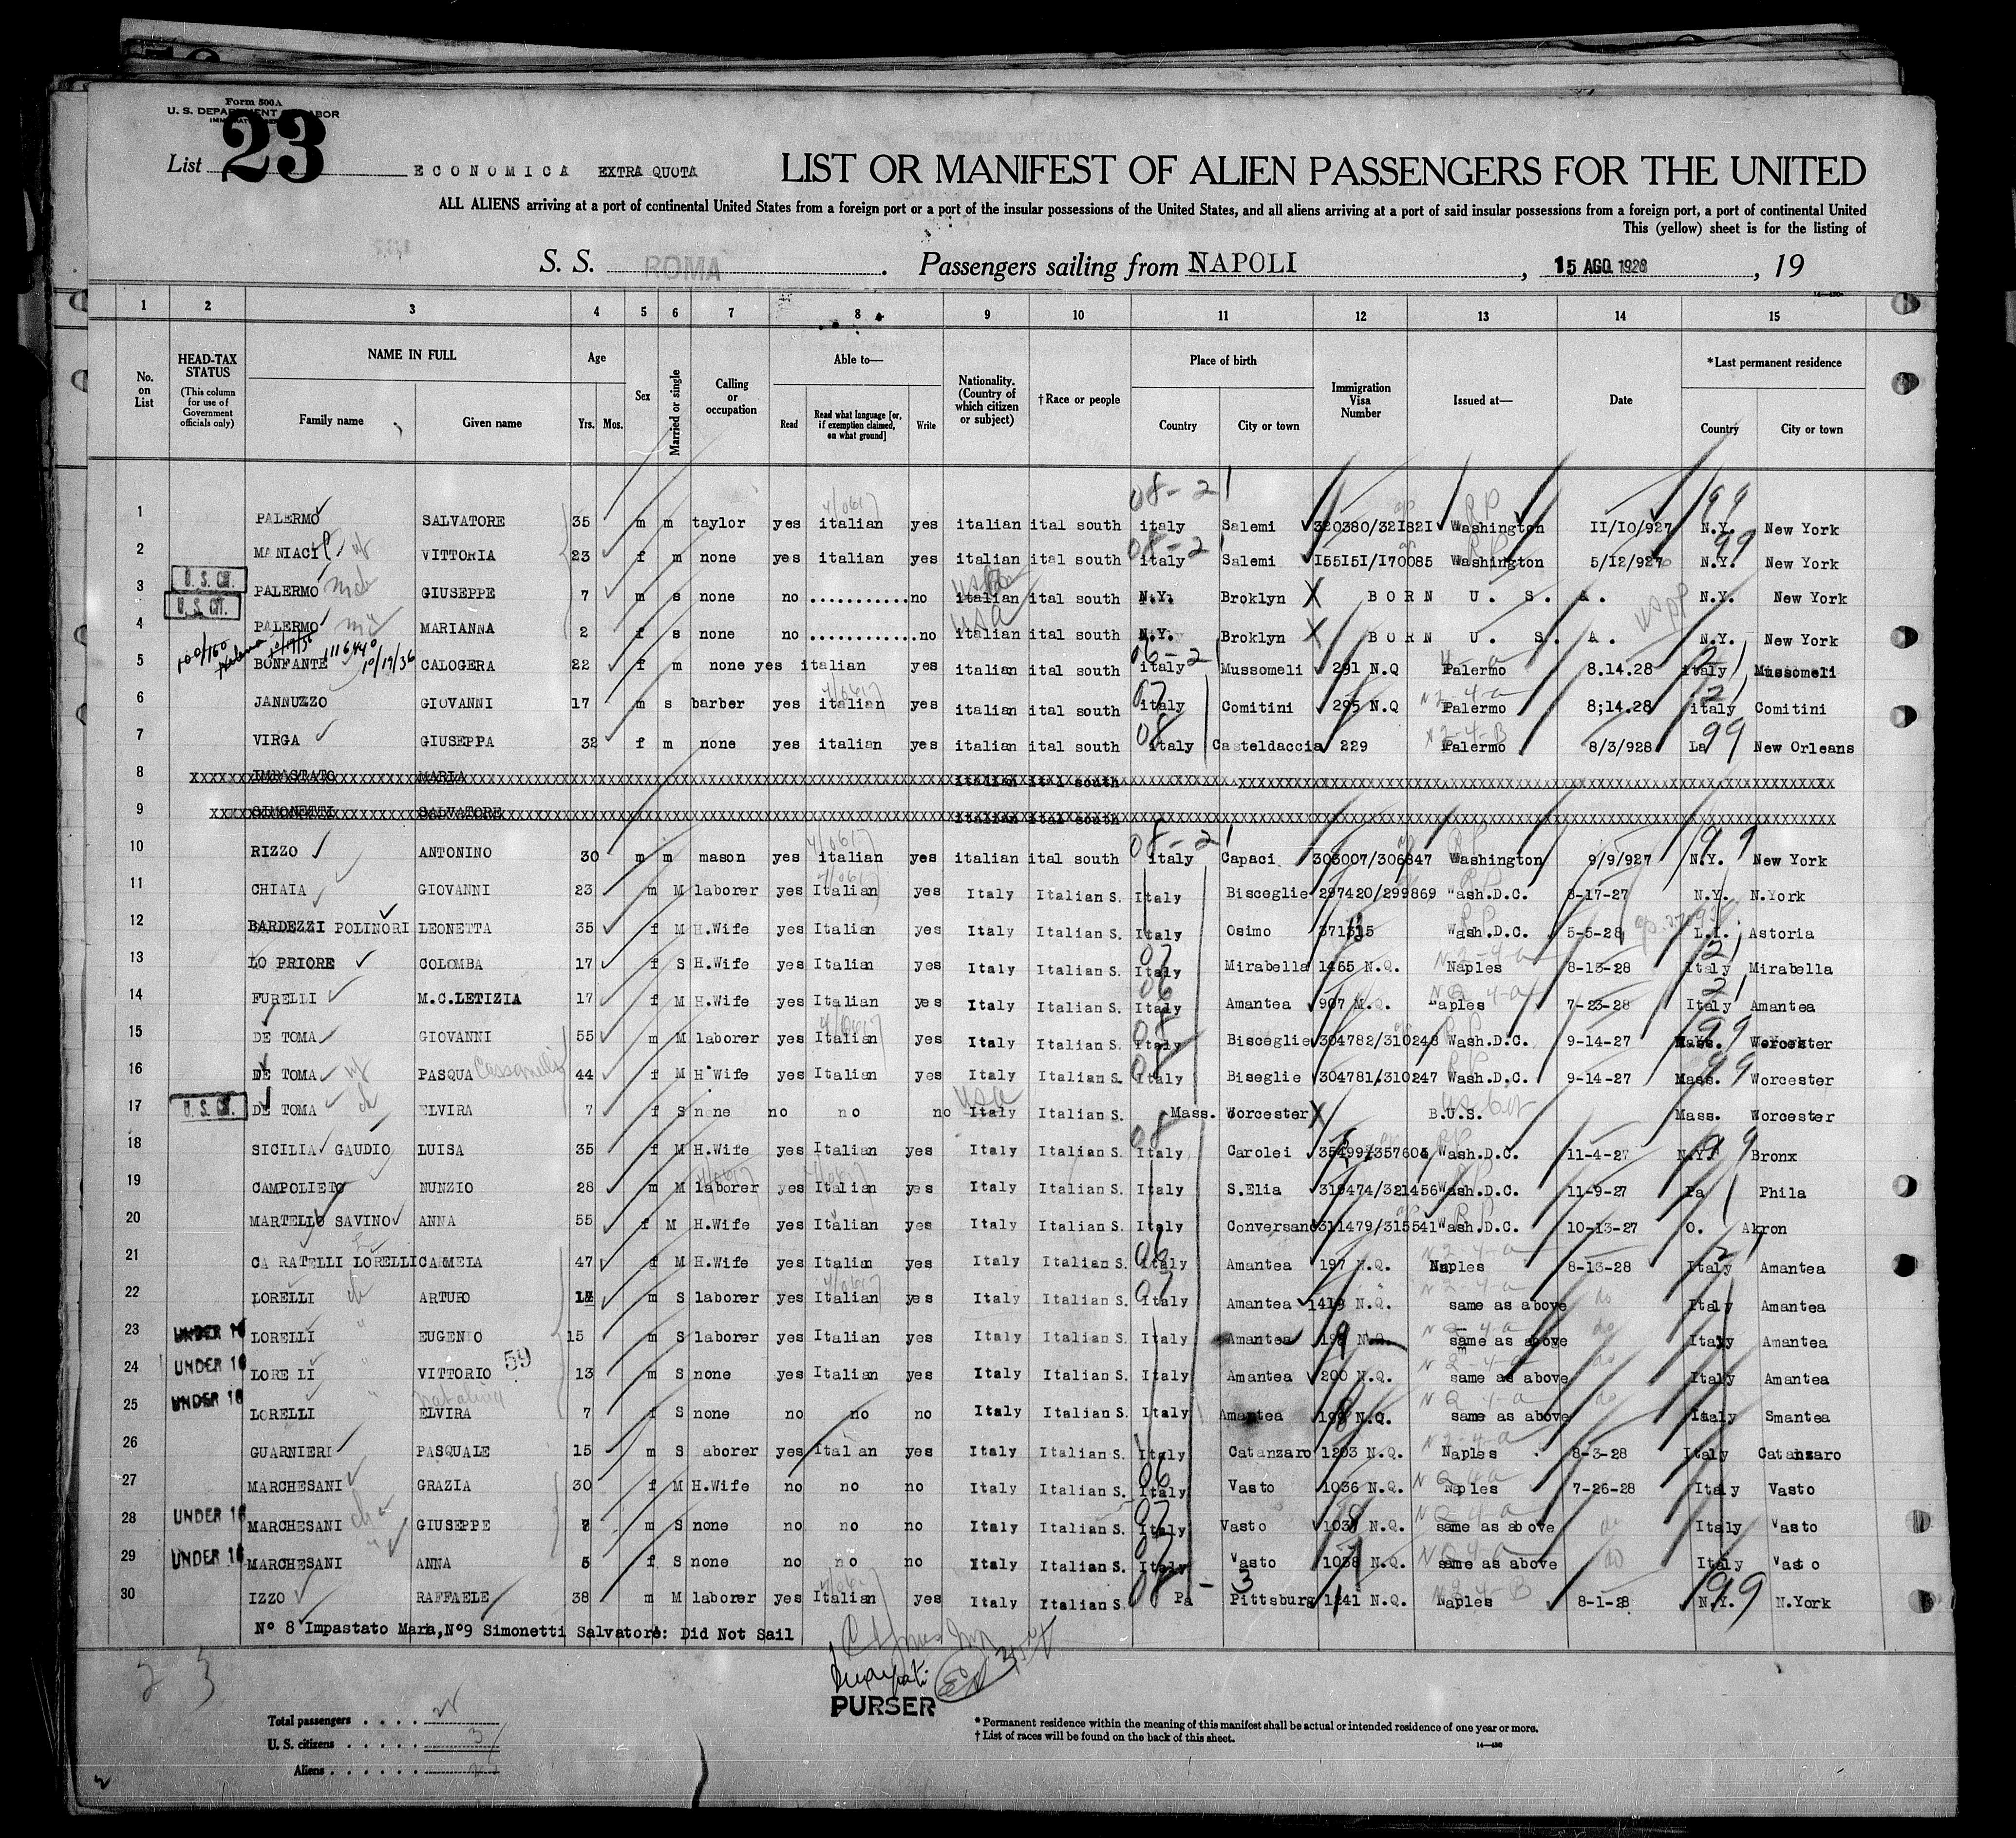 Form 500A
U. S. DEPARTMENT OF LABOR
List 23 ECONOMICA EXTRA QUOTA LIST OR MANIFEST OF ALIEN PASSENGERS FOR THE UNITED
ALL ALIENS arriving at a port of continental United States from a foreign port or a port of the insular possessions of the United States, and all aliens arriving at a port of said insular possessions from a foreign port, a port of continental United
This (yellow) sheet is for the listing of
S. S. ROMA. Passengers sailing from NAPOLI, 15 AGO. 1928, 19
1 2 3 4 5 6 7 8 9 10 11 12 13 14 15
No. on List HEAD-TAX STATUS (This column for use of Government officials only) NAME IN FULL Family name Given name Age Yrs. Mos. Sex Married or single Calling or occupation Able to— Read Read what language [or, if exemption claimed, on what ground] Write Nationality. (Country of which citizen or subject) †Race or people Place of birth Country City or town Immigration Visa Number Issued at— Date *Last permanent residence Country City or town
1 PALERMO SALVATORE 35 m m taylor yes italian yes italian ital south italy Salemi 320380/321821 Washington 11/10/927 N.Y. New York
2 MANIACI VITTORIA 23 f m none yes italian yes italian ital south italy Salemi I55I5I/I70085 Washington 5/12/927 N.Y. New York
3 U. S. CIT. PALERMO GIUSEPPE 7 m s none no ............ no italian ital south N.Y. Broklyn X BORN U. S. A. N.Y. New York
4 U. S. CIT. PALERMO MARIANNA 2 f s none no ............. no italian ital south N.Y. Broklyn X BORN U. S. A. N.Y. New York
5 BONFANTE 10/19/36 CALOGERA 22 f m none yes italian yes italian ital south italy Mussomeli 291 N.Q Palermo 8.14.28 italy Mussomeli
6 JANNUZZO GIOVANNI 17 m s barber yes italian yes italian ital south italy Comitini 295 N.Q Palermo 8;14.28 italy Comitini
7 VIRGA GIUSEPPA 32 f m none yes italian yes italian ital south italy Casteldaccia 229 Palermo 8/3/928 La 99 New Orleans
8 IMPASTATO MARIA italian ital south
9 SIMONETTI SALVATORE italian ital south
10 RIZZO ANTONINO 30 m m mason yes italian yes italian ital south italy Capaci 303007/306847 Washington 9/9/927 N.Y. New York
11 CHIAIA GIOVANNI 23 m M laborer yes Italian yes Italy Italian S. Italy Bisceglie 297420/299869 Wash.D.C. 8-17-27 N.Y. N.York
12 BARDEZZI POLINORI LEONETTA 35 f M H.Wife yes Italian yes Italy Italian S. Italy Osimo 371315 Wash.D.C. 5-5-28 L.I. Astoria
13 LO PRIORE COLOMBA 17 f S H.Wife yes Italian yes Italy Italian S. Italy Mirabella 1465 N.Q. Naples 8-13-28 Italy Mirabella
14 FURELLI M.C.LETIZIA 17 f M H.Wife yes Italian yes Italy Italian S. Italy Amantea 907 N.Q. Naples 7-23-28 Italy Amantea
15 DE TOMA GIOVANNI 55 m M laborer yes Italian yes Italy Italian S. Italy Bisceglie 304782/310248 Wash.D.C. 9-14-27 Mass. Worcester
16 DE TOMA PASQUA 44 f M H.Wife yes Italian yes Italy Italian S. Italy Biseglie 304781/310247 Wash.D.C. 9-14-27 Mass. Worcester
17 U. S. CIT. DE TOMA ELVIRA 7 f S none no no no Italy Italian S. Mass. Worcester X B.U.S. Mass. Worcester
18 SICILIA GAUDIO LUISA 35 f M H.Wife yes Italian yes Italy Italian S. Italy Carolei Wash.D.C. 11-4-27 N.Y. Bronx
19 CAMPOLIETO NUNZIO 28 m M laborer yes Italian yes Italy Italian S. Italy S.Elia 319474/321456 Wash.D.C. 11-9-27 Pa Phila
20 MARTELLO SAVINO ANNA 55 f M H.Wife yes Italian yes Italy Italian S. Italy Conversano 311479/315541 Wash.D.C. 10-13-27 O. Akron
21 CA RATELLI LORELLI CARMELA 47 f M H.Wife yes Italian yes Italy Italian S. Italy Amantea 197 N.Q. Naples 8-13-28 Italy Amantea
22 LORELLI ARTURO m S laborer yes Italian yes Italy Italian S. Italy Amantea 1419 N.Q. same as above do Italy Amantea
23 UNDER 16 LORELLI EUGENIO 15 m S laborer yes Italian yes Italy Italian S. Italy Amantea N.Q. same as above do Italy Amantea
24 UNDER 16 LORE LI VITTORIO 59 13 m S none yes Italian yes Italy Italian S. Italy Amantea 200 N.Q. same as above do Italy Amantea
25 UNDER 16 LORELLI ELVIRA 7 f S none no no no Italy Italian S. Italy Amantea 198 N.Q. same as above do Italy Smantea
26 GUARNIERI PASQUALE 15 m S laborer yes Italian yes Italy Italian S. Italy Catanzaro 1203 N.Q. Naples 8-3-28 Italy Catanzaro
27 MARCHESANI GRAZIA 30 f M H.Wife no no no Italy Italian S. Italy Vasto 1036 N.Q. Naples 7-26-28 Italy Vasto
28 UNDER 16 MARCHESANI GIUSEPPE m S none no no no Italy Italian S. Italy Vasto N.Q. same as above do Italy Vasto
29 UNDER 16 MARCHESANI ANNA 5 f S none no no no Italy Italian S. Italy Vasto 1038 N.Q. same as above do Italy Vasto
30 IZZO RAFFAELE 38 m M laborer yes Italian yes Italy Italian S. Pa Pittsburg 1241 N.Q. Naples 8-1-28 N.Y. N.York
Nº 8 Impastato Maria,Nº9 Simonetti Salvatore: Did Not Sail
23
PURSER
Total passengers . . . .
U. S. citizens . . . . . 3
Aliens . . . . . .
* Permanent residence within the meaning of this manifest shall be actual or intended residence of one year or more.
† List of races will be found on the back of this sheet.
14—430